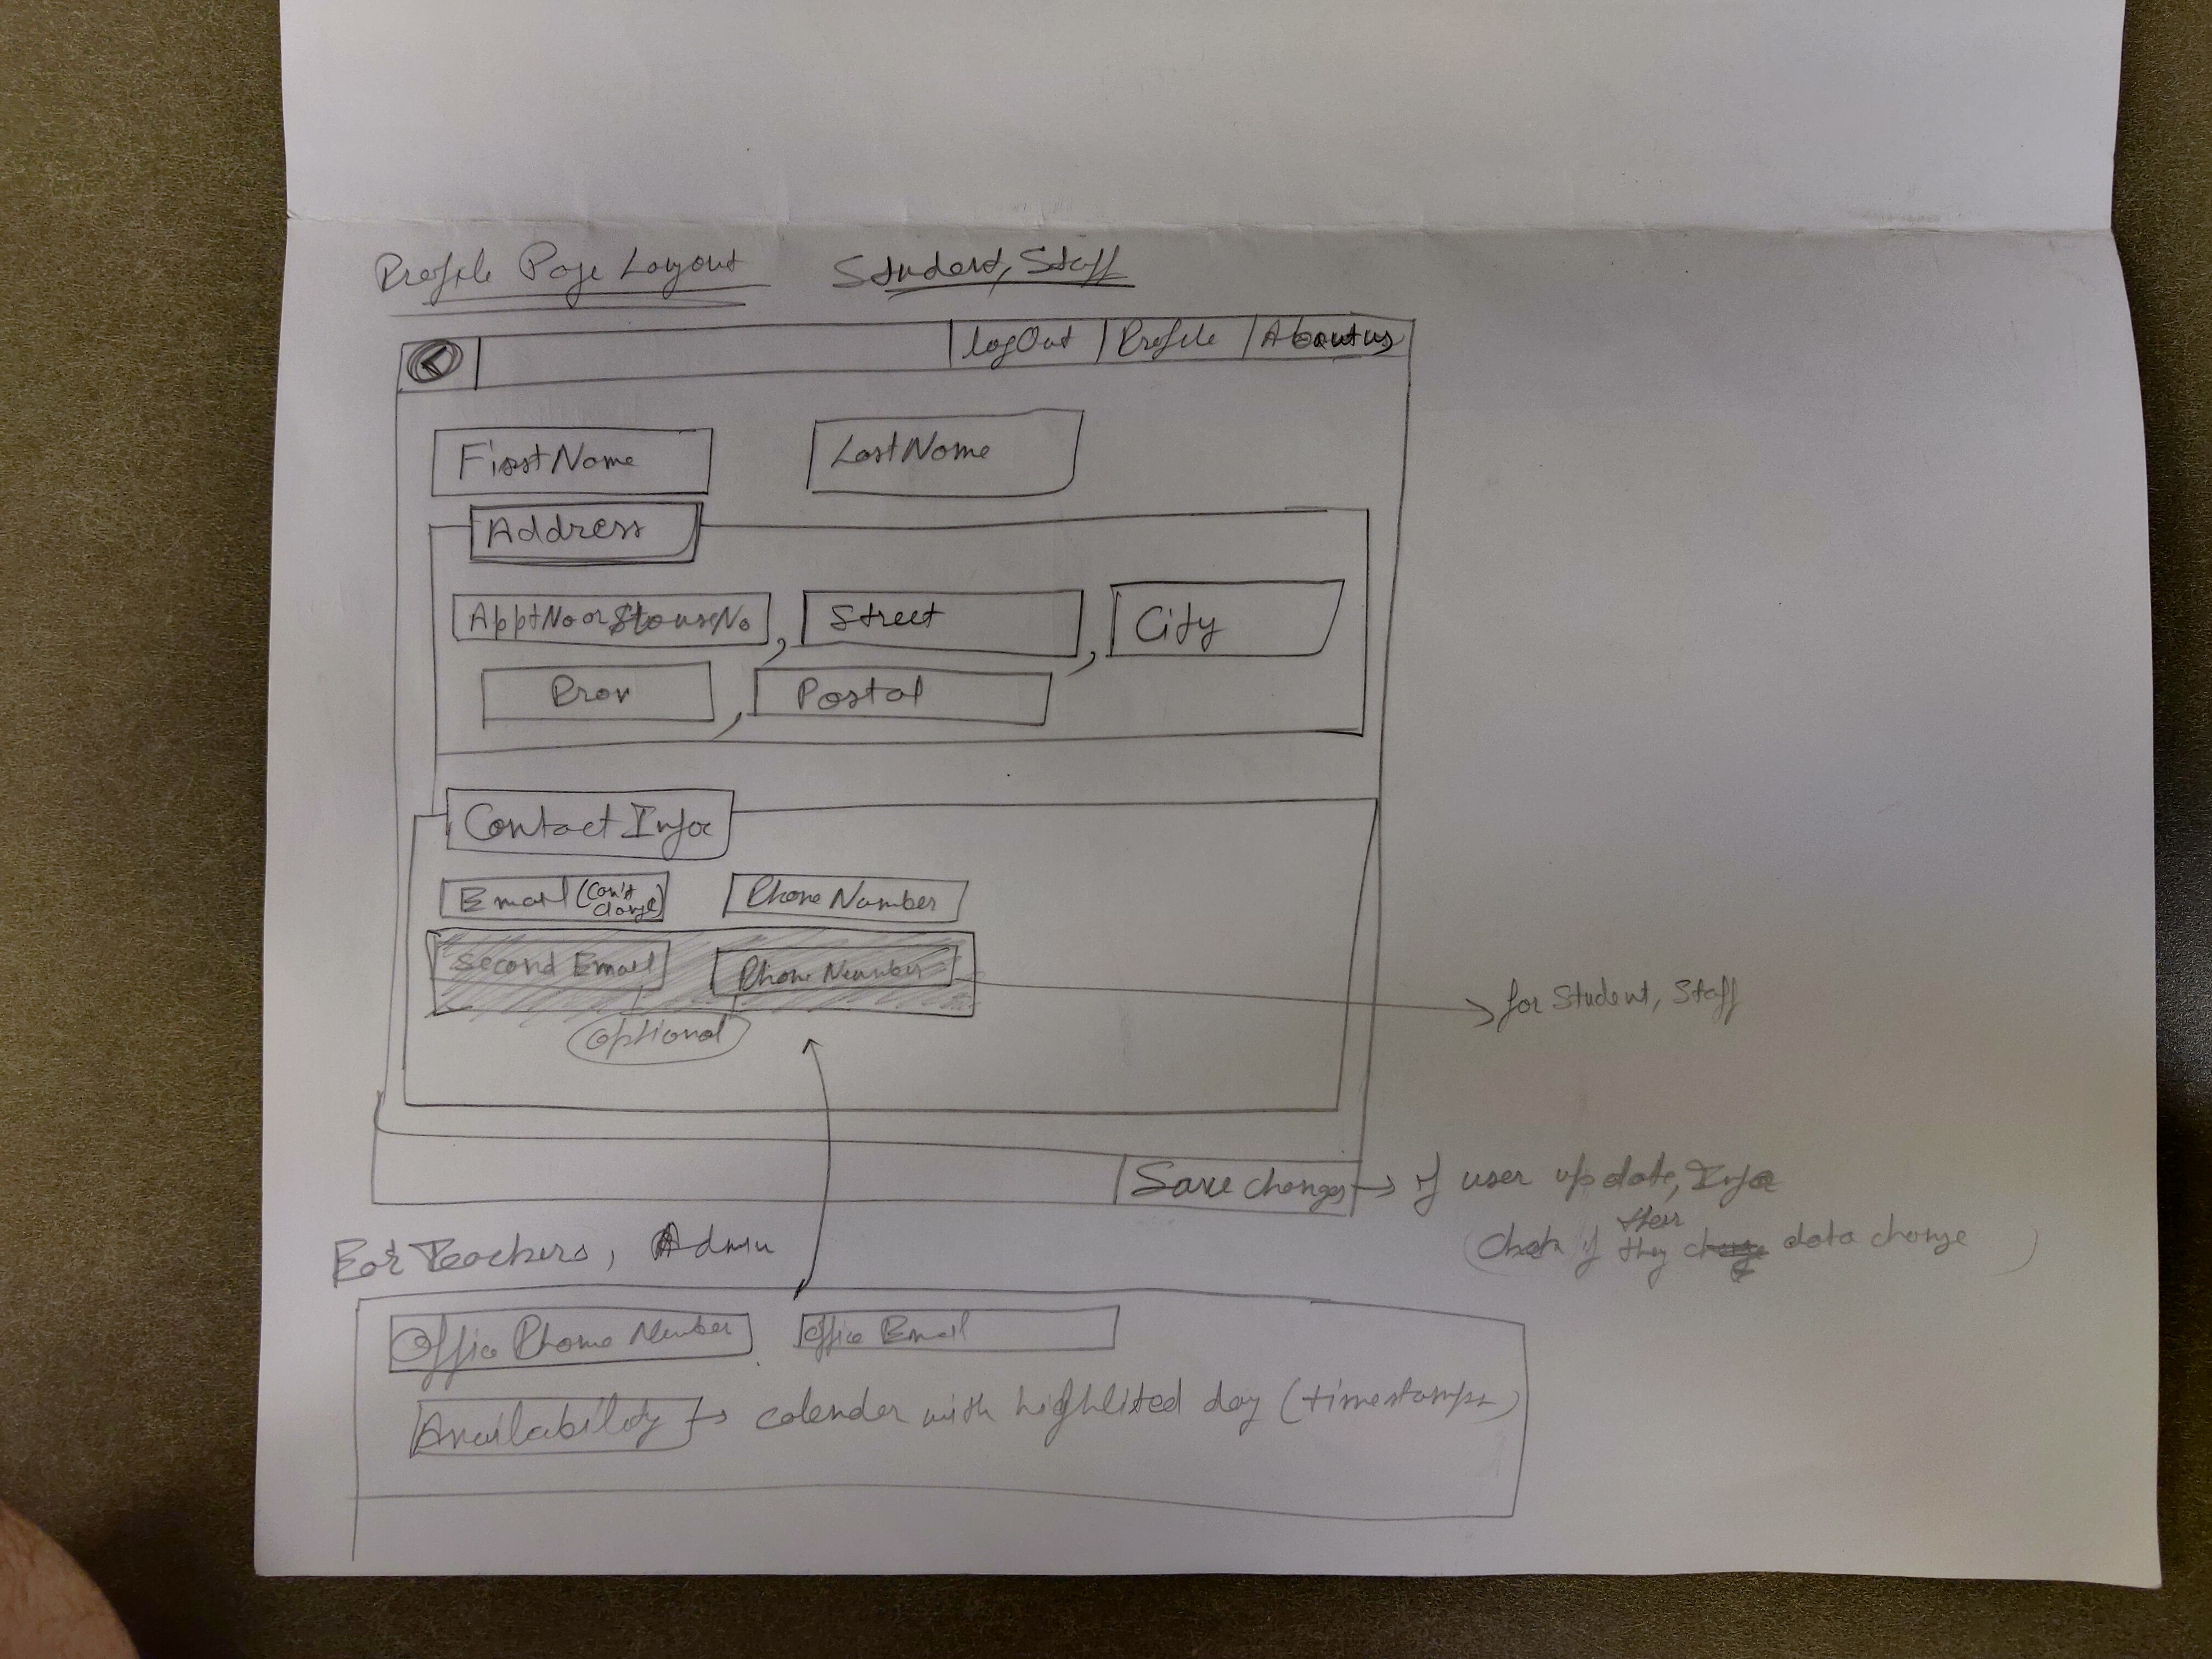 Profile Page Layout Student, Staff
< LogOut Profile About us
FirstName LastName
Address
ApptNo or HouseNo , Street , City
Prov , Postal
Contact Info
Email (can't change) Phone Number
Second Email Phone Number
optional
for Student, Staff
Save changes → if user update, Info
(Check if they their data change)
For Teachers, Admin
Office Phone Number Office Email
Availability → calender with highlited day (timestamps)